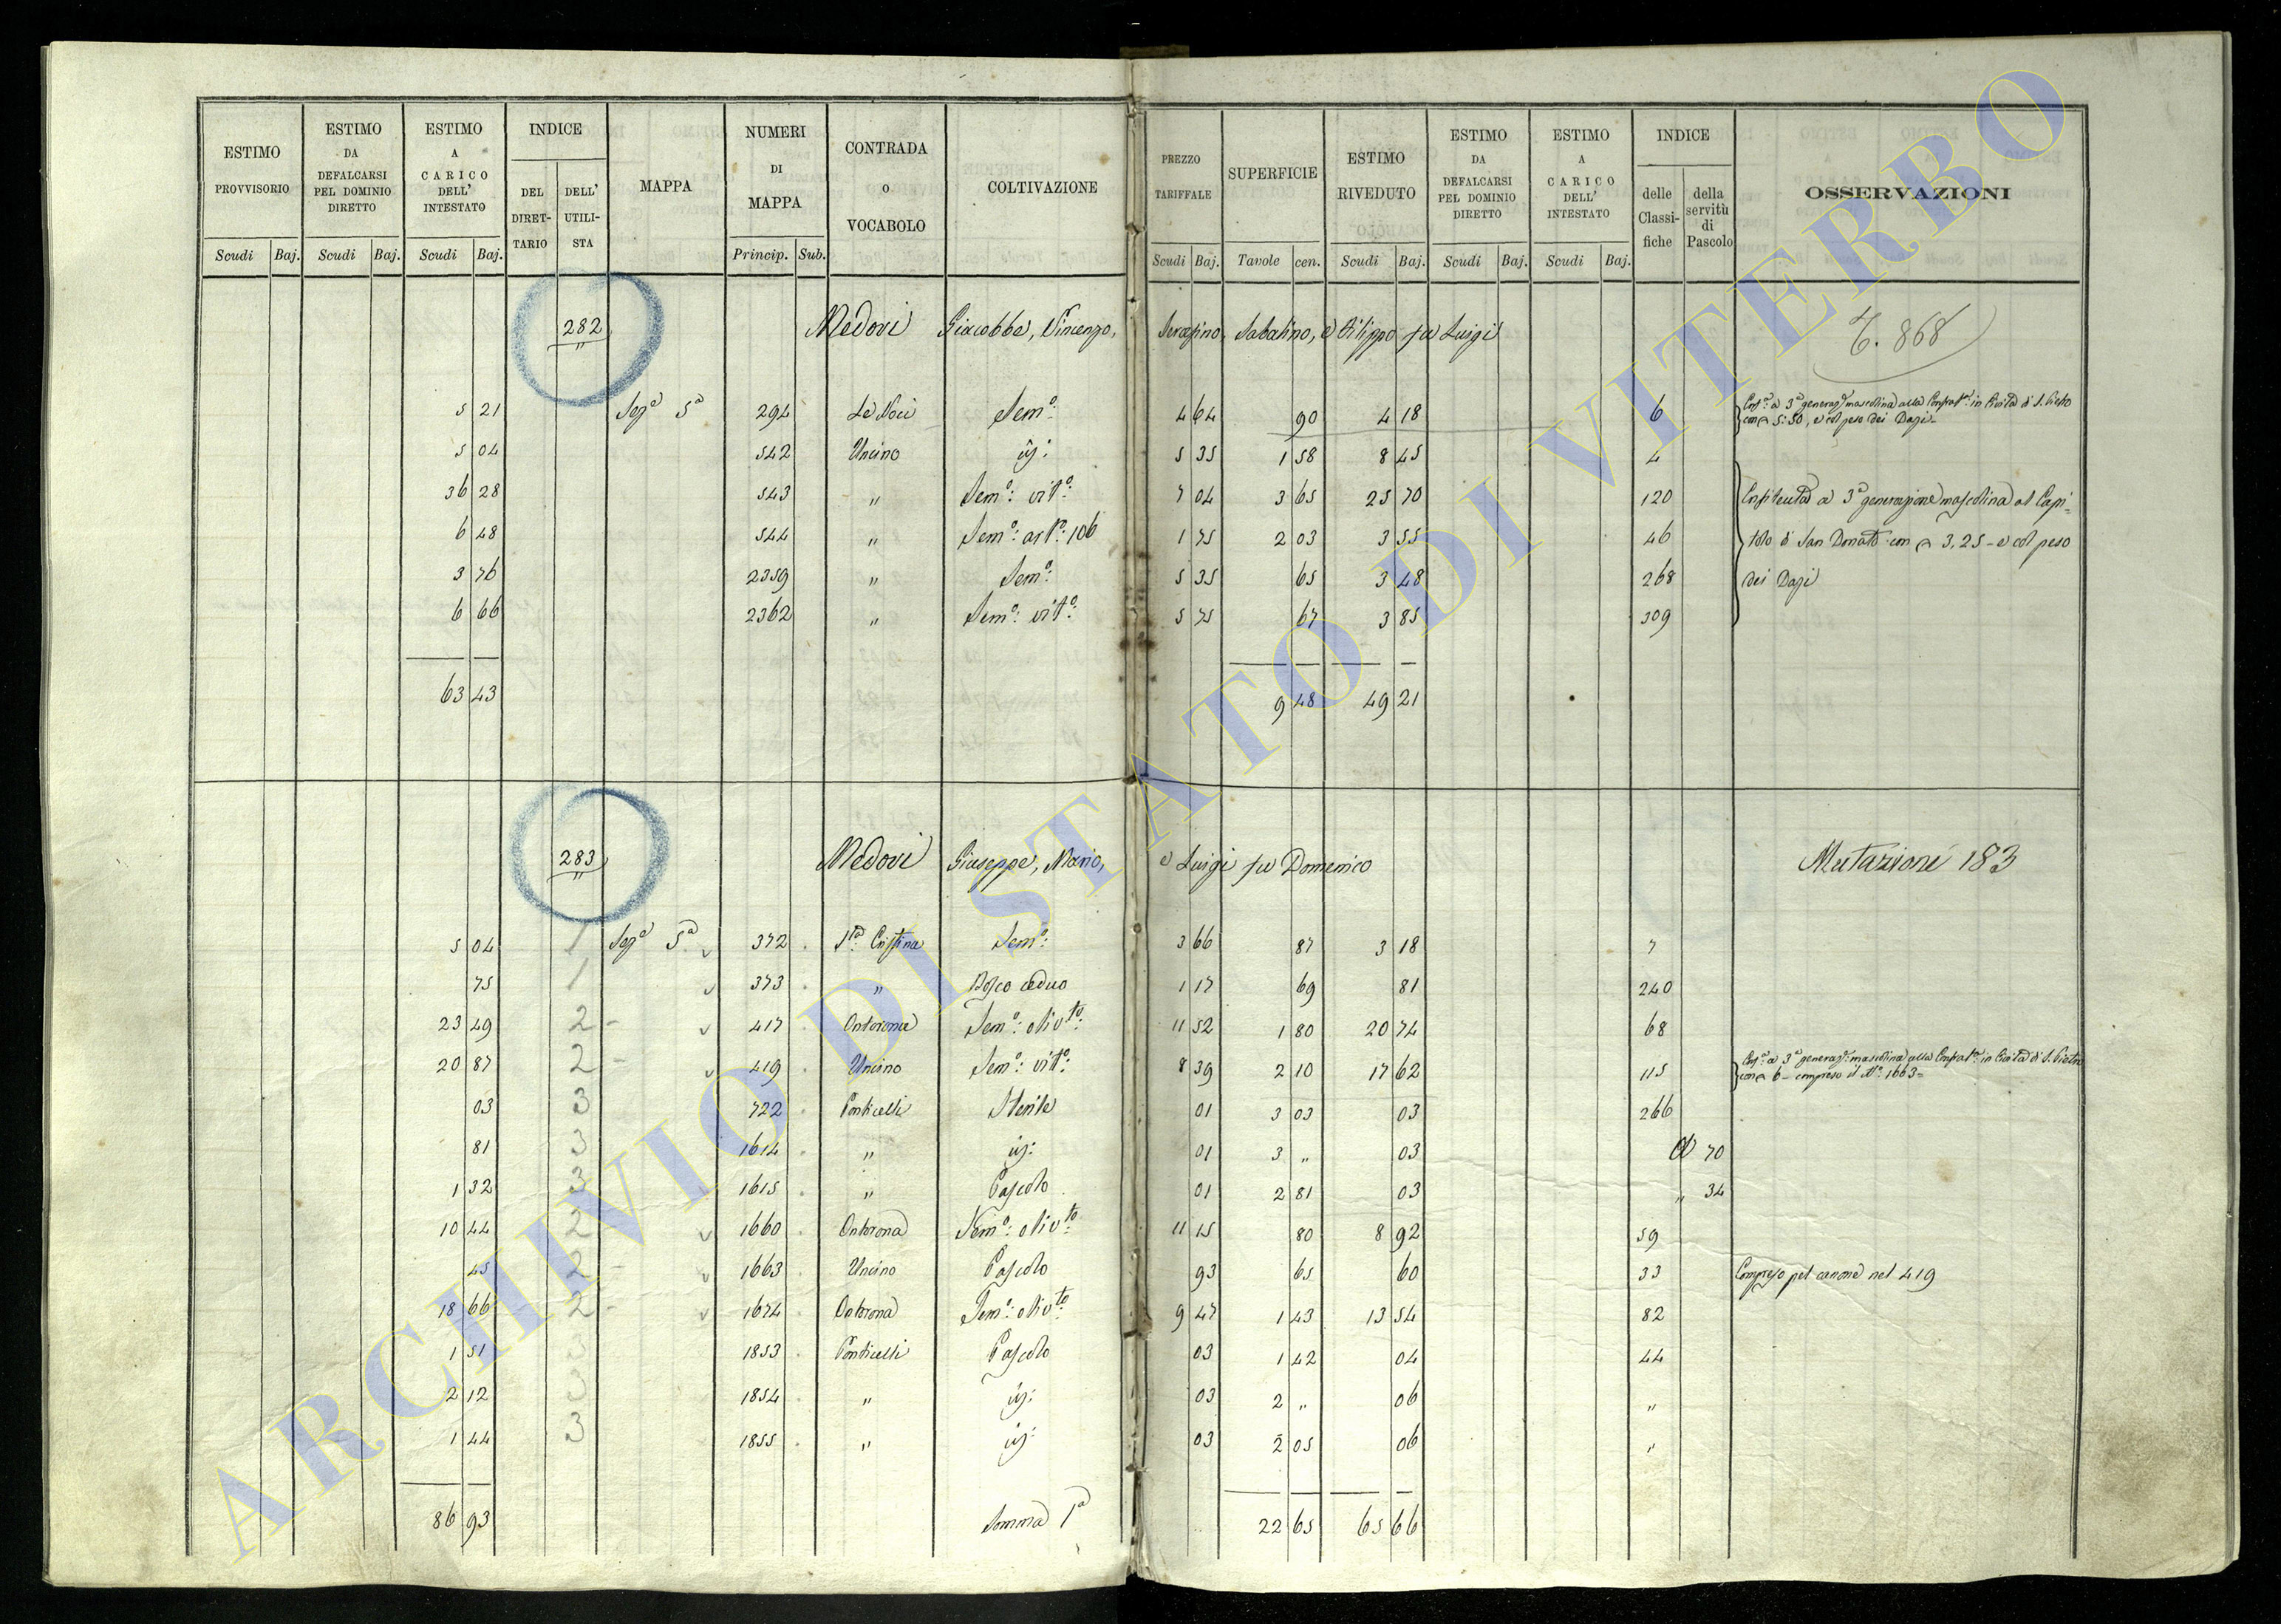 ESTIMO PROVVISORIO | ESTIMO DA DEFALCARSI PEL DOMINIO DIRETTO | ESTIMO A CARICO DELL' INTESTATO | INDICE DEL DIRETTARIO | DELL' UTILISTA | MAPPA | NUMERI DI MAPPA | CONTRADA o VOCABOLO | COLTIVAZIONE | PREZZO TARIFFALE | SUPERFICIE | ESTIMO RIVEDUTO | ESTIMO DA DEFALCARSI PEL DOMINIO DIRETTO | ESTIMO A CARICO DELL' INTESTATO | INDICE delle Classifiche | della servitù di Pascolo | OSSERVAZIONI
Scudi Baj. Scudi Baj. Scudi Baj. Princip. Sub. Scudi Baj. Tavole cen. Scudi Baj. Scudi Baj. Scudi Baj.
282 Medori Giacobbe, Vincenzo, Serafino, Sabatino, e Filippo fu Luigi T. 868
5 21 Sez.e 5a 294 Le Noci Sem.o: 4 64 90 4 18 6 Enf.a a 3a generaz.e mascolina alla Confrat.a in Civita di S. Pietro
con 5:50, e col peso dei Dazi
5 04 542 Uncino id: 5 35 1 58 8 45 4
36 28 543 " Sem.o: vit.o: 7 04 3 65 25 70 120 Enfiteutico a 3a generazione mascolina al Capi=
6 48 544 " Sem.o: 106 1 75 2 03 3 55 46 tolo di San Donato con 3,25 - e col peso
3 76 2359 " Sem.o: 5 35 65 3 48 268 dei Dazi
6 66 2362 " Sem.o: vit.o: 5 75 67 3 85 309
63 43 9 48 49 21
283 Medori Giuseppe, Mario, e Luigi fu Domenico Mutazione 183
5 04 1 Sez.e 5a 372 S.ta Cristina Sem.o: 3 66 87 3 18 7
75 1 373 " Bosco ceduo 1 17 69 81 240
23 49 2 417 Sem.o: oliv.to: 11 52 1 80 20 74 68
20 87 2 419 Uncino Sem.o: vit.o: 8 39 2 10 17 62 115 Enf.a a 3a generaz.e mascolina alla Confrat.a in Civita di S. Pietro
con 6 - compreso il N.o: 1663=
03 3 722 Ponticelli Sterile 01 3 03 03 266
81 3 1614 " id: 01 3 " 03 70
1 32 3 1615 " Pascolo 01 2 81 03 " 34
10 44 2 1660 Sem.o: oliv.to: 11 15 80 8 92 59
45 2 1663 Uncino Pascolo 93 65 60 33 Compreso pel canone nel 419
18 66 2 1674 Sem.o: oliv.to: 9 47 1 43 13 54 82
1 51 3 1853 Ponticelli Pascolo 03 1 42 04 44
2 12 3 1854 " id: 03 2 " 06 "
1 44 3 1855 " id: 03 2 05 06 "
86 93 Somma 1a 22 65 65 66
ARCHIVIO DI STATO DI VITERBO